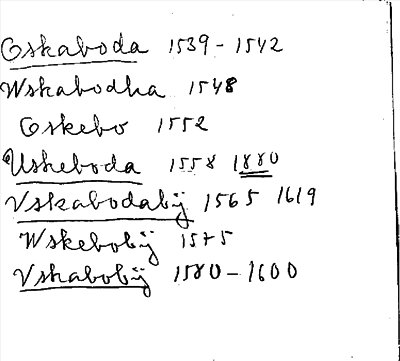 Oskaboda 1539 - 1542
Wskabodha 1548
Oskebo 1552
Uskeboda 1558 1880
Vskabodabÿ 1565 1619
Wskebobÿ 1575
Vskabobÿ 1580 - 1600